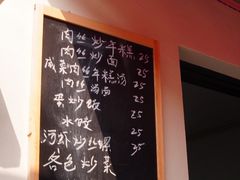 肉丝炒年糕 25
肉丝炒面 25
咸菜肉丝年糕汤 25
肉丝汤面 25
蛋炒饭 25
水饺 25
河虾炒螺 35
各色炒菜